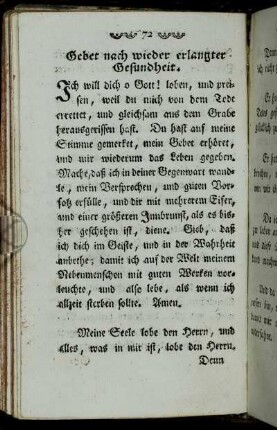 72
Gebet nach wieder erlangter
Gesundheit.
Ich will dich o Gott! loben, und prei-
sen, weil du mich von dem Tode
errettet, und gleichsam aus dem Grabe
herausgerissen hast. Du hast auf meine
Stimme gemerket, mein Gebet erhöret,
und mir wiederum das Leben gegeben.
Mache, daß ich in deiner Gegenwart wand-
le, mein Versprechen, und guten Vor-
satz erfülle, und dir mit mehrerem Eifer,
und einer größeren Innbrunst, als es bis-
her geschehen ist, diene. Gieb, daß
ich dich im Geiste, und in der Wahrheit
anbethe; damit ich auf der Welt meinem
Nebenmenschen mit guten Werken vor-
leuchte, und also lebe, als wenn ich
allzeit sterben sollte. Amen.
Meine Seele lobe den Herrn, und
alles, was in mir ist, lobe den Herrn.
Denn